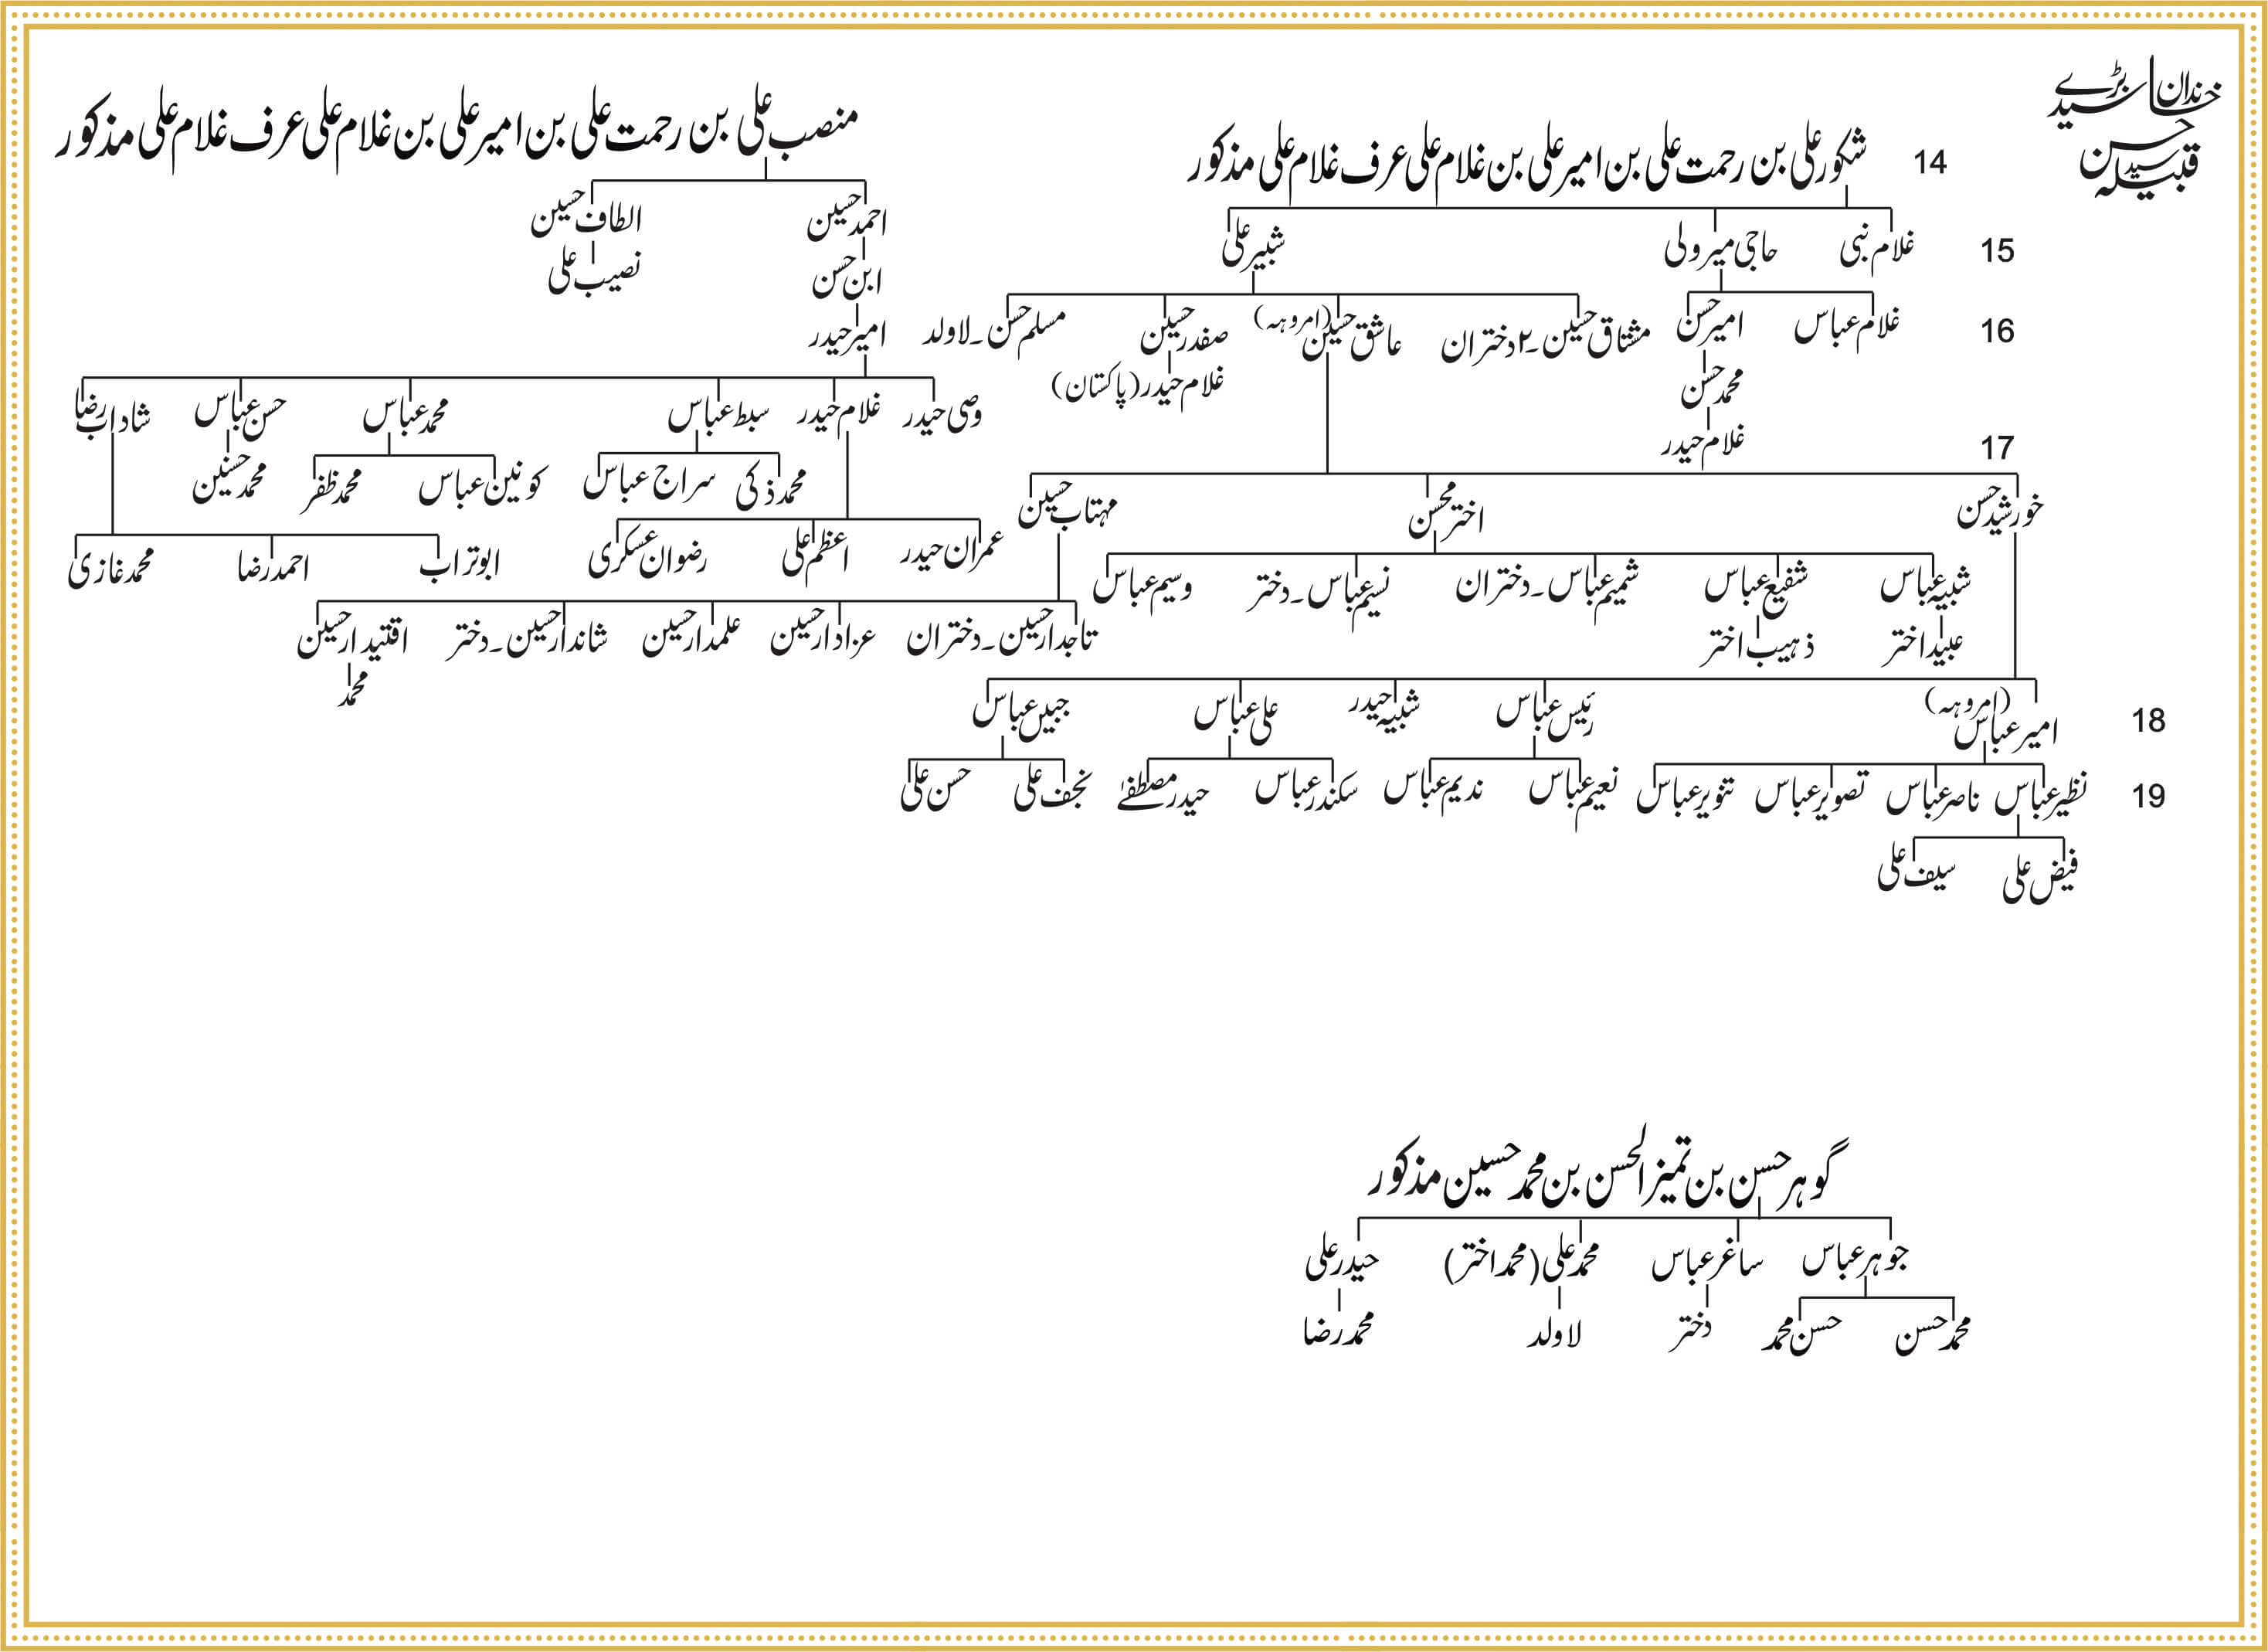 خاندان بڑے سید
حسن
قبیلہ سید
14 شکور علی بن رحمت علی بن امیر علی بن غلام علی عرف غلام علی مذکور
منصب علی بن رحمت علی بن امیر علی بن غلام علی عرف غلام علی مذکور
15 غلام نبی حاجی میر ولی شبیر علی
16 غلام عباس امیر حسن مشتاق حسین۔۲ دختران عاشق حسین (امروہہ) صفدر حسین مسلم حسن۔لاولد
محمد حسن غلام حیدر (پاکستان)
غلام حیدر
17
خورشید حسن اختر محسن مہتاب حسین
شبیہ عباس شفیع عباس شمیم عباس۔دختران نسیم عباس۔دختر وسیم عباس
عبید اختر ذہیب اختر
تاجدار حسین۔دختران عزادار حسین علمدار حسین شاندار حسین۔دختر اقتیدار حسین
محمد
18 امیر عباس (امروہہ) رئیس عباس شبیہ حیدر علی عباس جبیں عباس
19 نظیر عباس ناصر عباس تصویر عباس تنویر عباس نعیم عباس ندیم عباس سکندر عباس حیدر مصطفےٰ نجف علی حسن علی
فیض علی سیف علی
احمد حسین الطاف حسین
ابن حسن نصیب علی
امیر حیدر
وصی حیدر غلام حیدر سبط عباس محمد عباس حسن عباس شاداب رضا
محمد ذکی سراج عباس کونین عباس محمد ظفر محمد حسنین
عمران حیدر اعظم علی رضوان عسکری ابوتراب احمد رضا محمد غازی
گوہر حسن بن تمیز الحسن بن محمد حسین مذکور
جوہر عباس ساغر عباس محمد علی (محمد اختر) حیدر علی
محمد حسن حسن محمد دختر لاولد محمد رضا